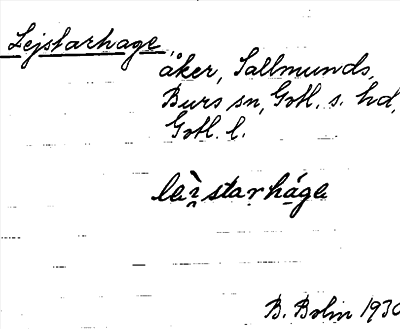 Lejstarhage,
åker, Sallmunds,
Burs sn, Gotl. s. hd,
Gotl. l.
lèi̯starháge
B. Bolin 1930